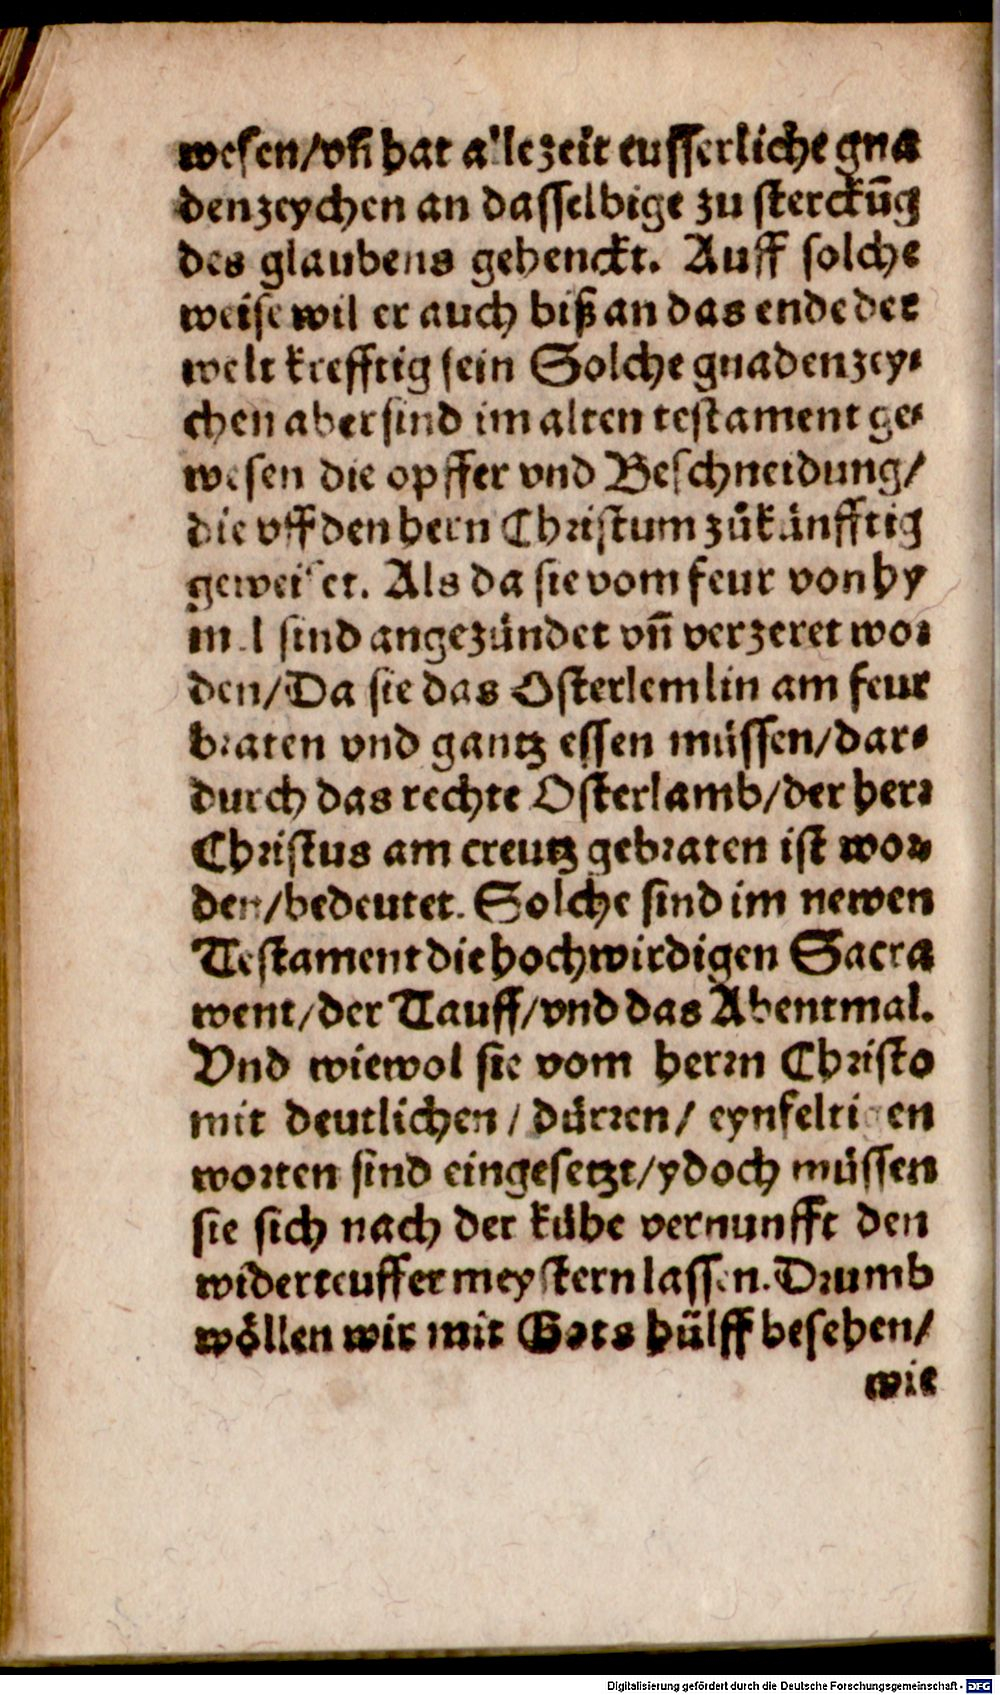 wesen/vñ hat allezeit eusserliche gna
denzeychen an dasselbige zu sterckūg
des glaubens gehenckt. Auff solche
weise wil er auch biß an das ende der
welt krefftig sein Solche gnadenzey⸗
chen aber sind im alten testament ge⸗
wesen die opffer vnd Beschneidung/
die vff den hern Christum zůkünfftig
geweiset. Als da sie vom feur von hy
mel sind angezündet vñ verzeret wor
den/Da sie das Osterlemlin am feur
braten vnd gantz essen müssen/dar⸗
durch das rechte Osterlamb/der herr
Christus am creutz gebraten ist wor⸗
den/bedeutet. Solche sind im newen
Testament die hochwirdigen Sacra
went/der Tauff/vnd das Abentmal.
Vnd wiewol sie vom herrn Christo
mit deutlichen/dürren/eynfeltigen
worten sind eingesetzt/ydoch müssen
sie sich nach der kühe vernunfft den
widerteuffer meystern lassen. Drumb
wöllen wir mit Gots hülff besehen/
wie
Digitalisierung gefördert durch die Deutsche Forschungsgemeinschaft - DFG